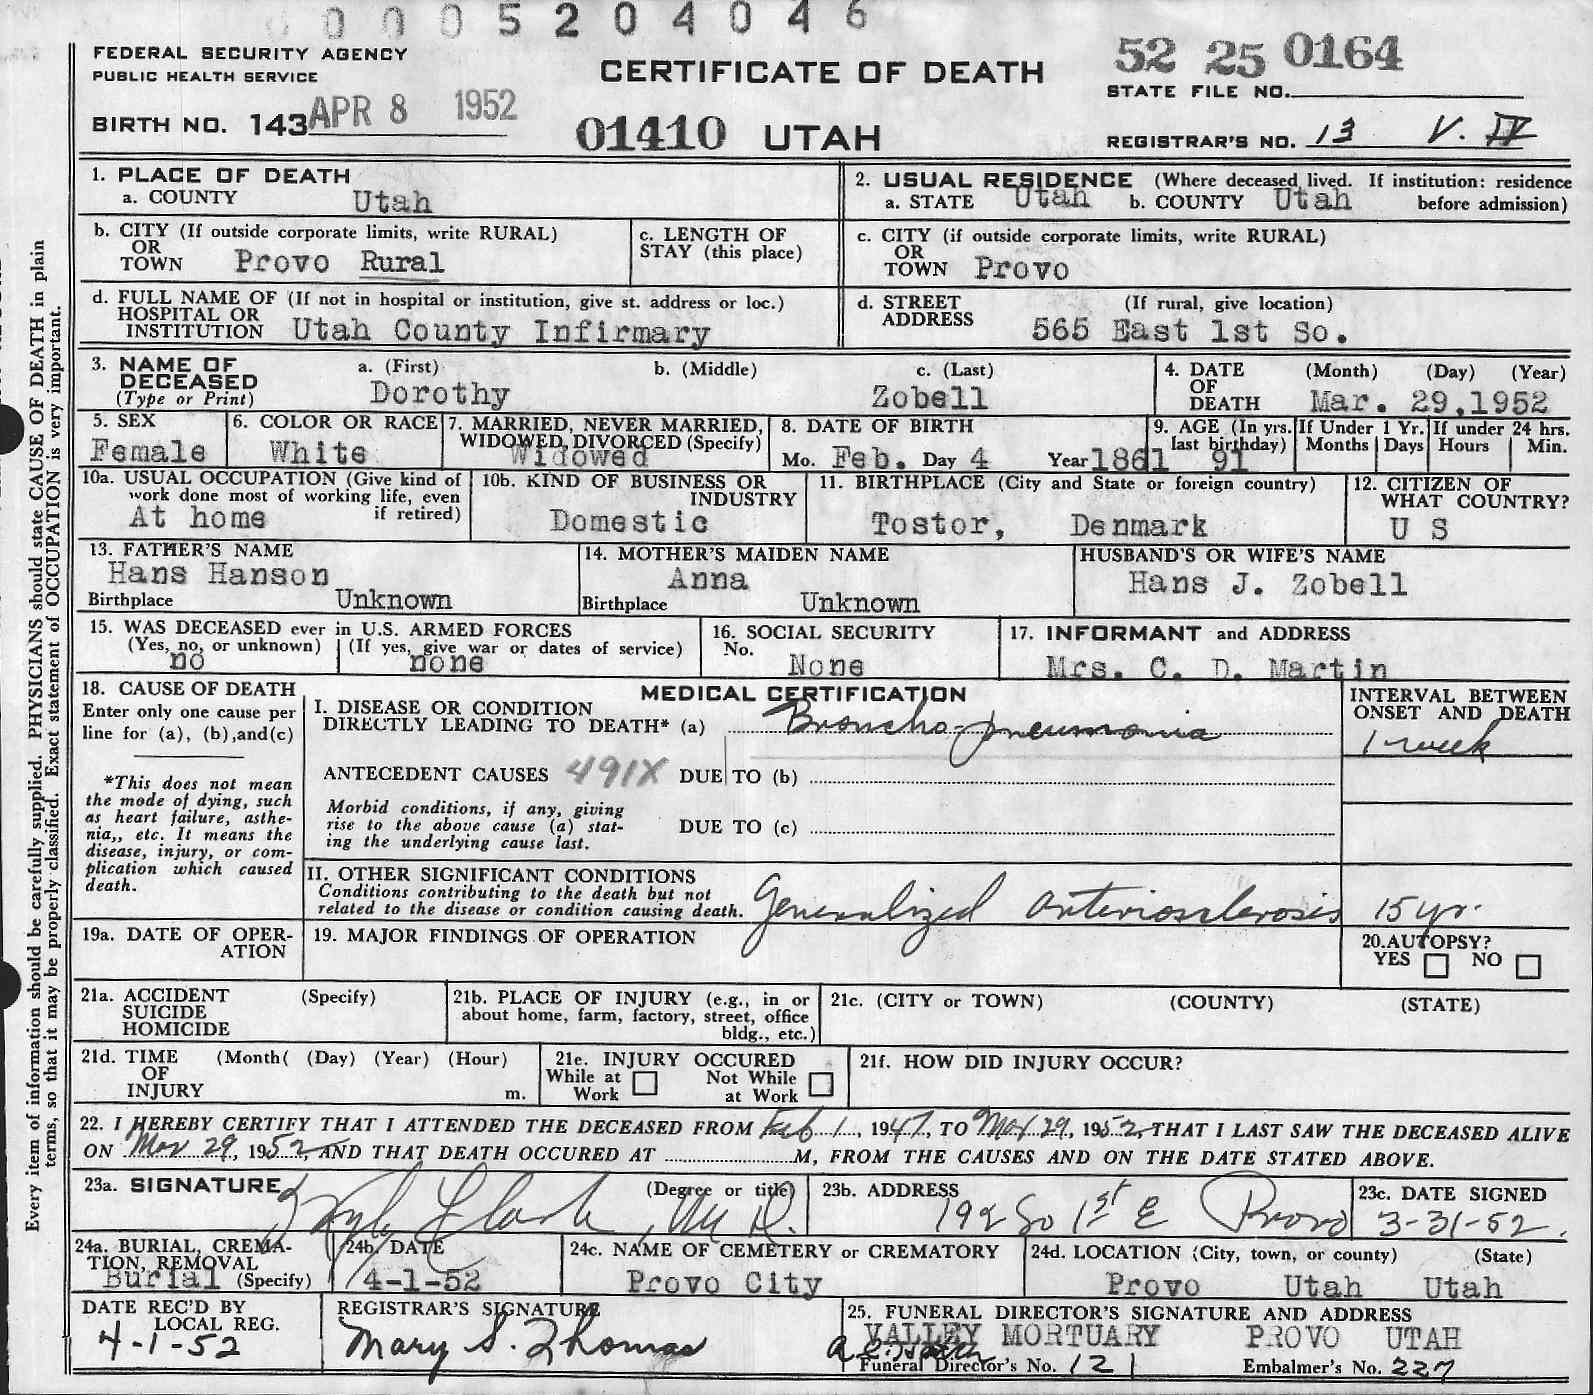 0 0 0 5 2 0 4 0 4 6
FEDERAL SECURITY AGENCY
PUBLIC HEALTH SERVICE
CERTIFICATE OF DEATH
52 25 0164
STATE FILE NO.
BIRTH NO. 143 APR 8 1952
01410 UTAH
REGISTRAR'S NO. 13 V. IV
1. PLACE OF DEATH
a. COUNTY Utah
2. USUAL RESIDENCE (Where deceased lived. If institution: residence before admission)
a. STATE Utah b. COUNTY Utah
b. CITY (If outside corporate limits, write RURAL)
OR
TOWN Provo Rural
c. LENGTH OF
STAY (this place)
c. CITY (if outside corporate limits, write RURAL)
OR
TOWN Provo
d. FULL NAME OF (If not in hospital or institution, give st. address or loc.)
HOSPITAL OR
INSTITUTION Utah County Infirmary
d. STREET (If rural, give location)
ADDRESS 565 East 1st So.
3. NAME OF
DECEASED
(Type or Print)
a. (First) b. (Middle) c. (Last)
Dorothy Zobell
4. DATE (Month) (Day) (Year)
OF
DEATH Mar. 29,1952
5. SEX
Female
6. COLOR OR RACE
White
7. MARRIED, NEVER MARRIED,
WIDOWED, DIVORCED (Specify)
Widowed
8. DATE OF BIRTH
Mo. Feb. Day 4 Year 1861
9. AGE (In yrs. last birthday)
91
If Under 1 Yr.
Months Days
If under 24 hrs.
Hours Min.
10a. USUAL OCCUPATION (Give kind of
work done most of working life, even
if retired)
At home
10b. KIND OF BUSINESS OR
INDUSTRY
Domestic
11. BIRTHPLACE (City and State or foreign country)
Tostor, Denmark
12. CITIZEN OF
WHAT COUNTRY?
U S
13. FATHER'S NAME
Hans Hanson
Birthplace Unknown
14. MOTHER'S MAIDEN NAME
Anna
Birthplace Unknown
HUSBAND'S OR WIFE'S NAME
Hans J. Zobell
15. WAS DECEASED ever in U.S. ARMED FORCES
(Yes, no, or unknown) (If yes, give war or dates of service)
no none
16. SOCIAL SECURITY
No.
None
17. INFORMANT and ADDRESS
Mrs. C. D. Martin
18. CAUSE OF DEATH
Enter only one cause per
line for (a), (b),and(c)
*This does not mean
the mode of dying, such
as heart failure, asthe-
nia,, etc. It means the
disease, injury, or com-
plication which caused
death.
MEDICAL CERTIFICATION
I. DISEASE OR CONDITION
DIRECTLY LEADING TO DEATH* (a) Broncho-pneumonia
INTERVAL BETWEEN
ONSET AND DEATH
1 week
ANTECEDENT CAUSES 491X DUE TO (b)
Morbid conditions, if any, giving
rise to the above cause (a) stat-
ing the underlying cause last.
DUE TO (c)
II. OTHER SIGNIFICANT CONDITIONS
Conditions contributing to the death but not
related to the disease or condition causing death.
Generalized arteriosclerosis 15 yr.
19a. DATE OF OPER-
ATION
19. MAJOR FINDINGS OF OPERATION
20.AUTOPSY?
YES NO
21a. ACCIDENT (Specify)
SUICIDE
HOMICIDE
21b. PLACE OF INJURY (e.g., in or
about home, farm, factory, street, office
bldg., etc.)
21c. (CITY or TOWN) (COUNTY) (STATE)
21d. TIME (Month( (Day) (Year) (Hour)
OF
INJURY m.
21e. INJURY OCCURED
While at Work Not While at Work
21f. HOW DID INJURY OCCUR?
22. I HEREBY CERTIFY THAT I ATTENDED THE DECEASED FROM Feb 1, 1947, TO Mar 29, 1952, THAT I LAST SAW THE DECEASED ALIVE
ON Mar 29, 1952 AND THAT DEATH OCCURED AT M, FROM THE CAUSES AND ON THE DATE STATED ABOVE.
23a. SIGNATURE (Degree or title)
Clark, M.D.
23b. ADDRESS
192 So 1st E Provo
23c. DATE SIGNED
3-31-52.
24a. BURIAL, CREMA-
TION, REMOVAL
Burial (Specify)
24b. DATE
4-1-52
24c. NAME OF CEMETERY or CREMATORY
Provo City
24d. LOCATION (City, town, or county) (State)
Provo Utah Utah
DATE REC'D BY
LOCAL REG.
4-1-52
REGISTRAR'S SIGNATURE
Mary S. Thomas
25. FUNERAL DIRECTOR'S SIGNATURE AND ADDRESS
VALLEY MORTUARY PROVO UTAH
Funeral Director's No. 121 Embalmer's No. 227
Every item of information should be carefully supplied. PHYSICIANS should state CAUSE OF DEATH in plain
terms, so that it may be properly classified. Exact statement of OCCUPATION is very important.